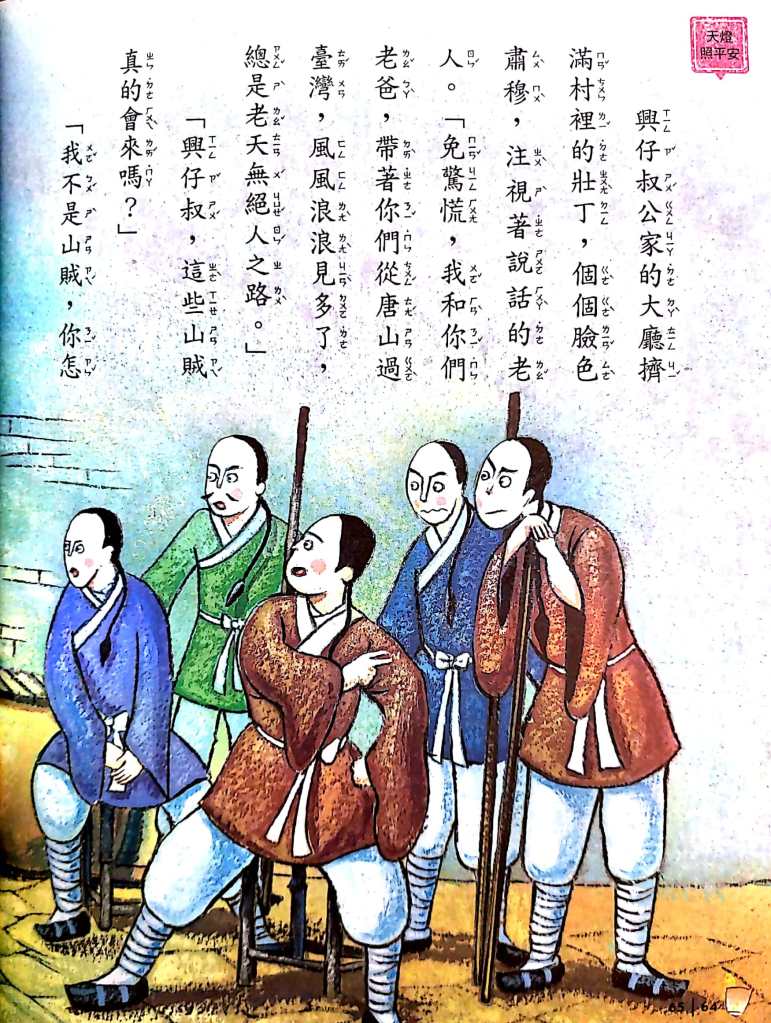 天燈
照平安
興仔叔公家的大廳擠
滿村裡的壯丁，個個臉色
肅穆，注視著說話的老
人。「免驚慌，我和你們
老爸，帶著你們從唐山過
臺灣，風風浪浪見多了，
總是老天無絕人之路。」
「興仔叔，這些山賊
真的會來嗎？」
「我不是山賊，你怎
65 | 64